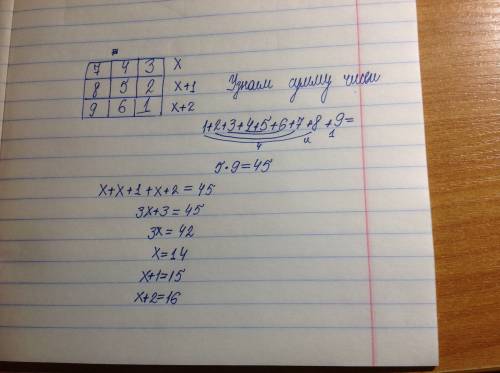 7 4 3 x
8 5 2 x+1
9 6 1 x+2
Узнаем сумму чисел
1+2+3+4+5+6+7+8+9=
4 1
5·9=45
x+x+1+x+2=45
3x+3=45
3x=42
x=14
x+1=15
x+2=16